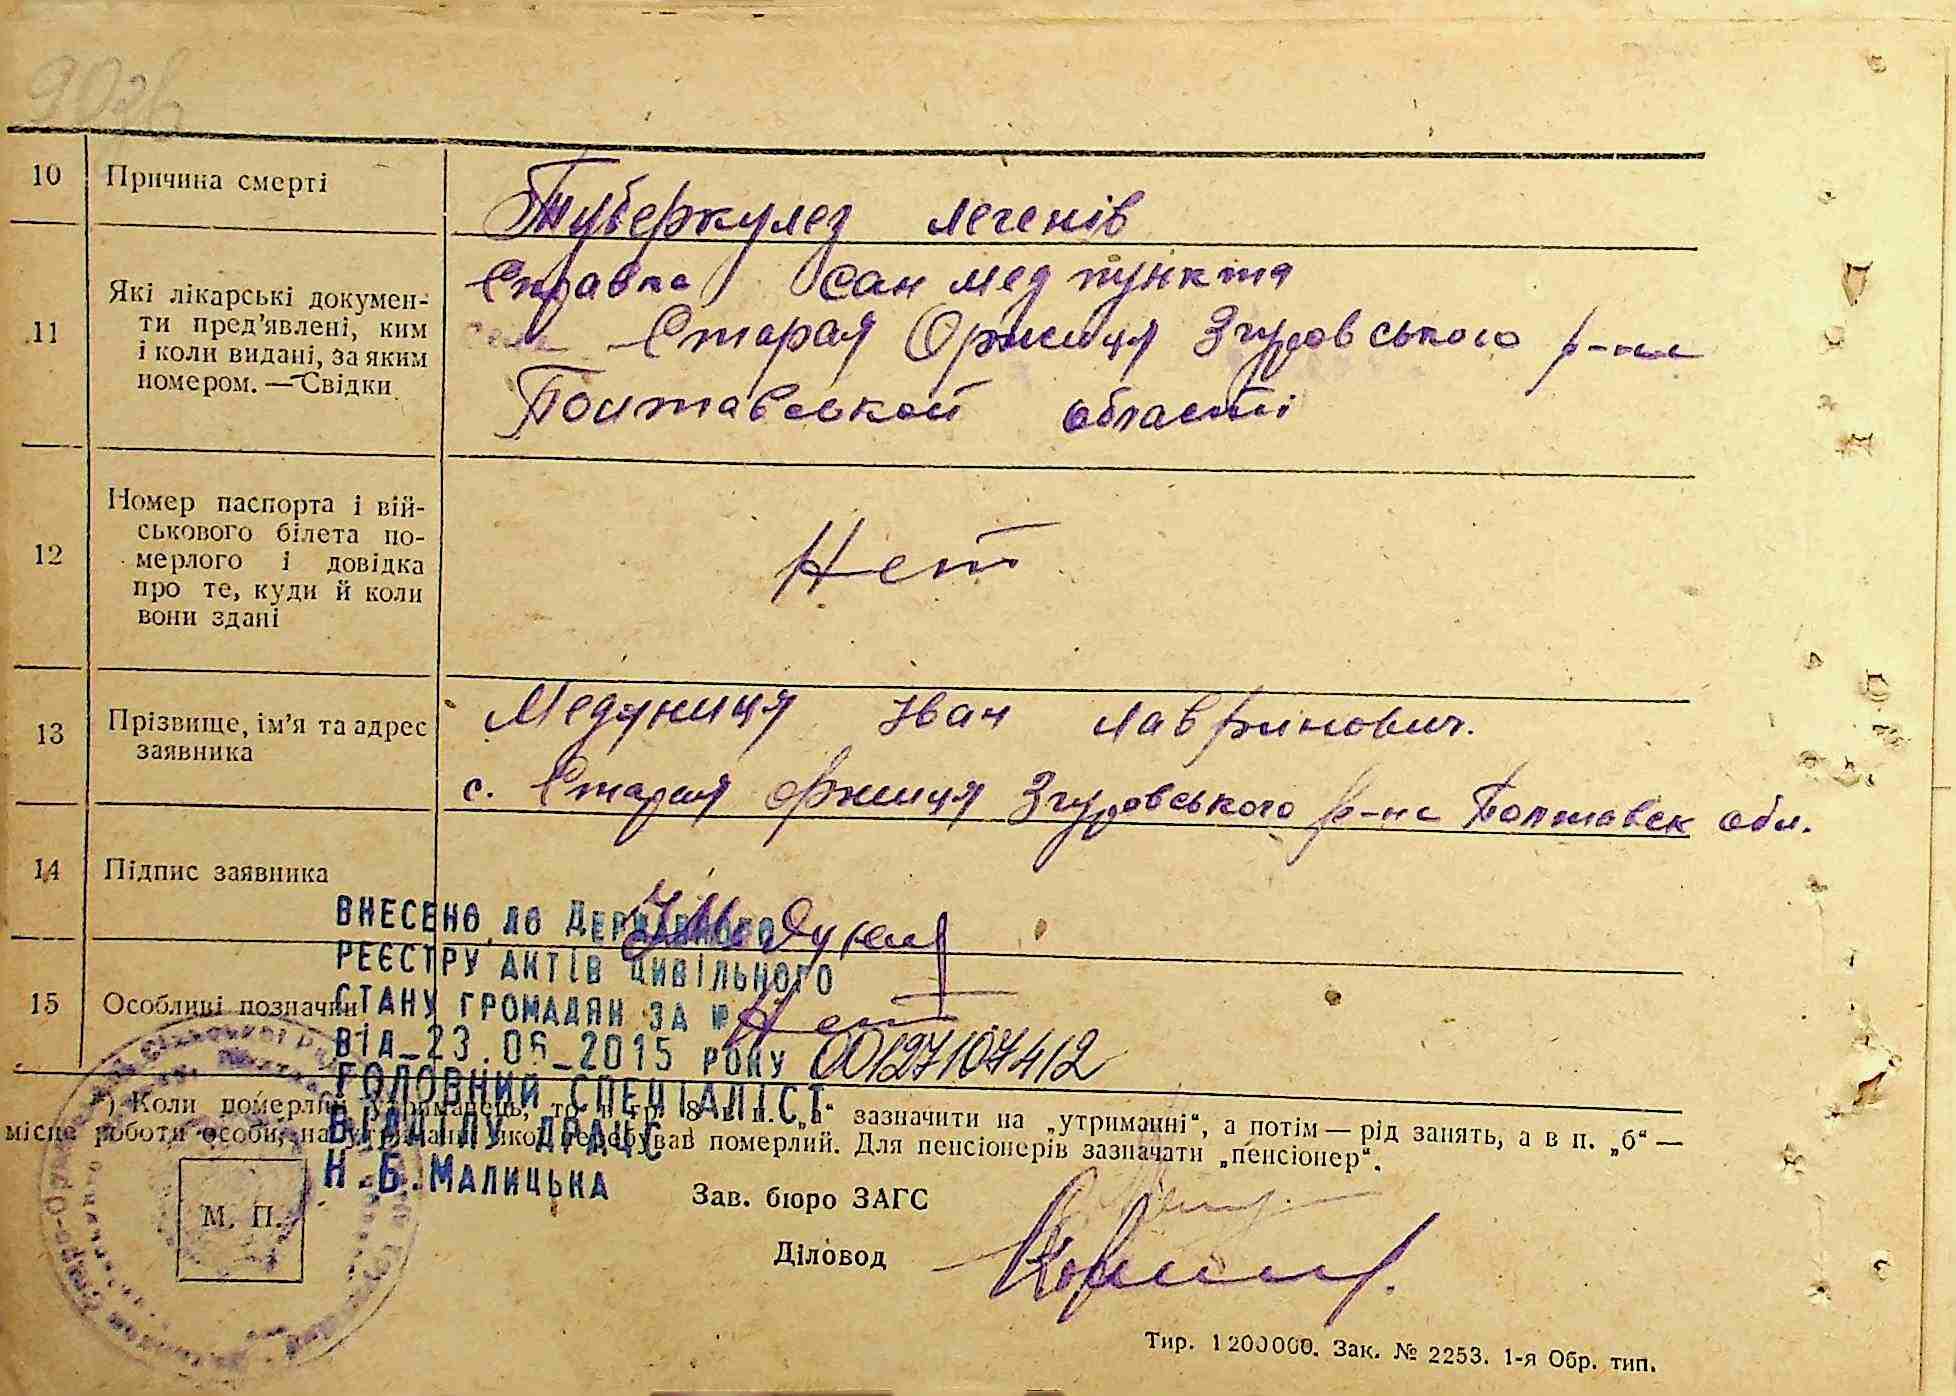 10 Причина смерті
Туберкулез легенів
11 Які лікарські докумен-
ти пред'явлені, ким
і коли видані, за яким
номером. — Свідки
Справка сан мед пункта
села Старая Оржиця Згуровського р-на
Полтавськой області
12 Номер паспорта і вій-
ськового білета по-
мерлого і довідка
про те, куди й коли
вони здані
Нет
13 Прізвище, ім'я та адрес
заявника
Медяниця Іван Лавринович.
с. Старая Оржиця Згуровського р-на Полтавск обл.
14 Підпис заявника
15 Особливі позначки
Нет
ВНЕСЕНО ДО ДЕРЖАВНОГО
РЕЄСТРУ АКТІВ ЦИВІЛЬНОГО
СТАНУ ГРОМАДЯН ЗА №
ВІД_23.06_2015 РОКУ 00127107412
ГОЛОВНИЙ СПЕЦІАЛІСТ
ВІДДІЛУ ДРАЦС
Н.Б.МАЛИЦЬКА
*) Коли померлий утриманець, то в гр. 8 в п. „а“ зазначити на „утриманні“, а потім — рід занять, а в п. „б“ —
місце роботи особи, на утриманні якої перебував померлий. Для пенсіонерів зазначати „пенсіонер“.
М. П.
Зав. бюро ЗАГС
Діловод
Тир. 1200000. Зак. № 2253. 1-я Обр. тип.